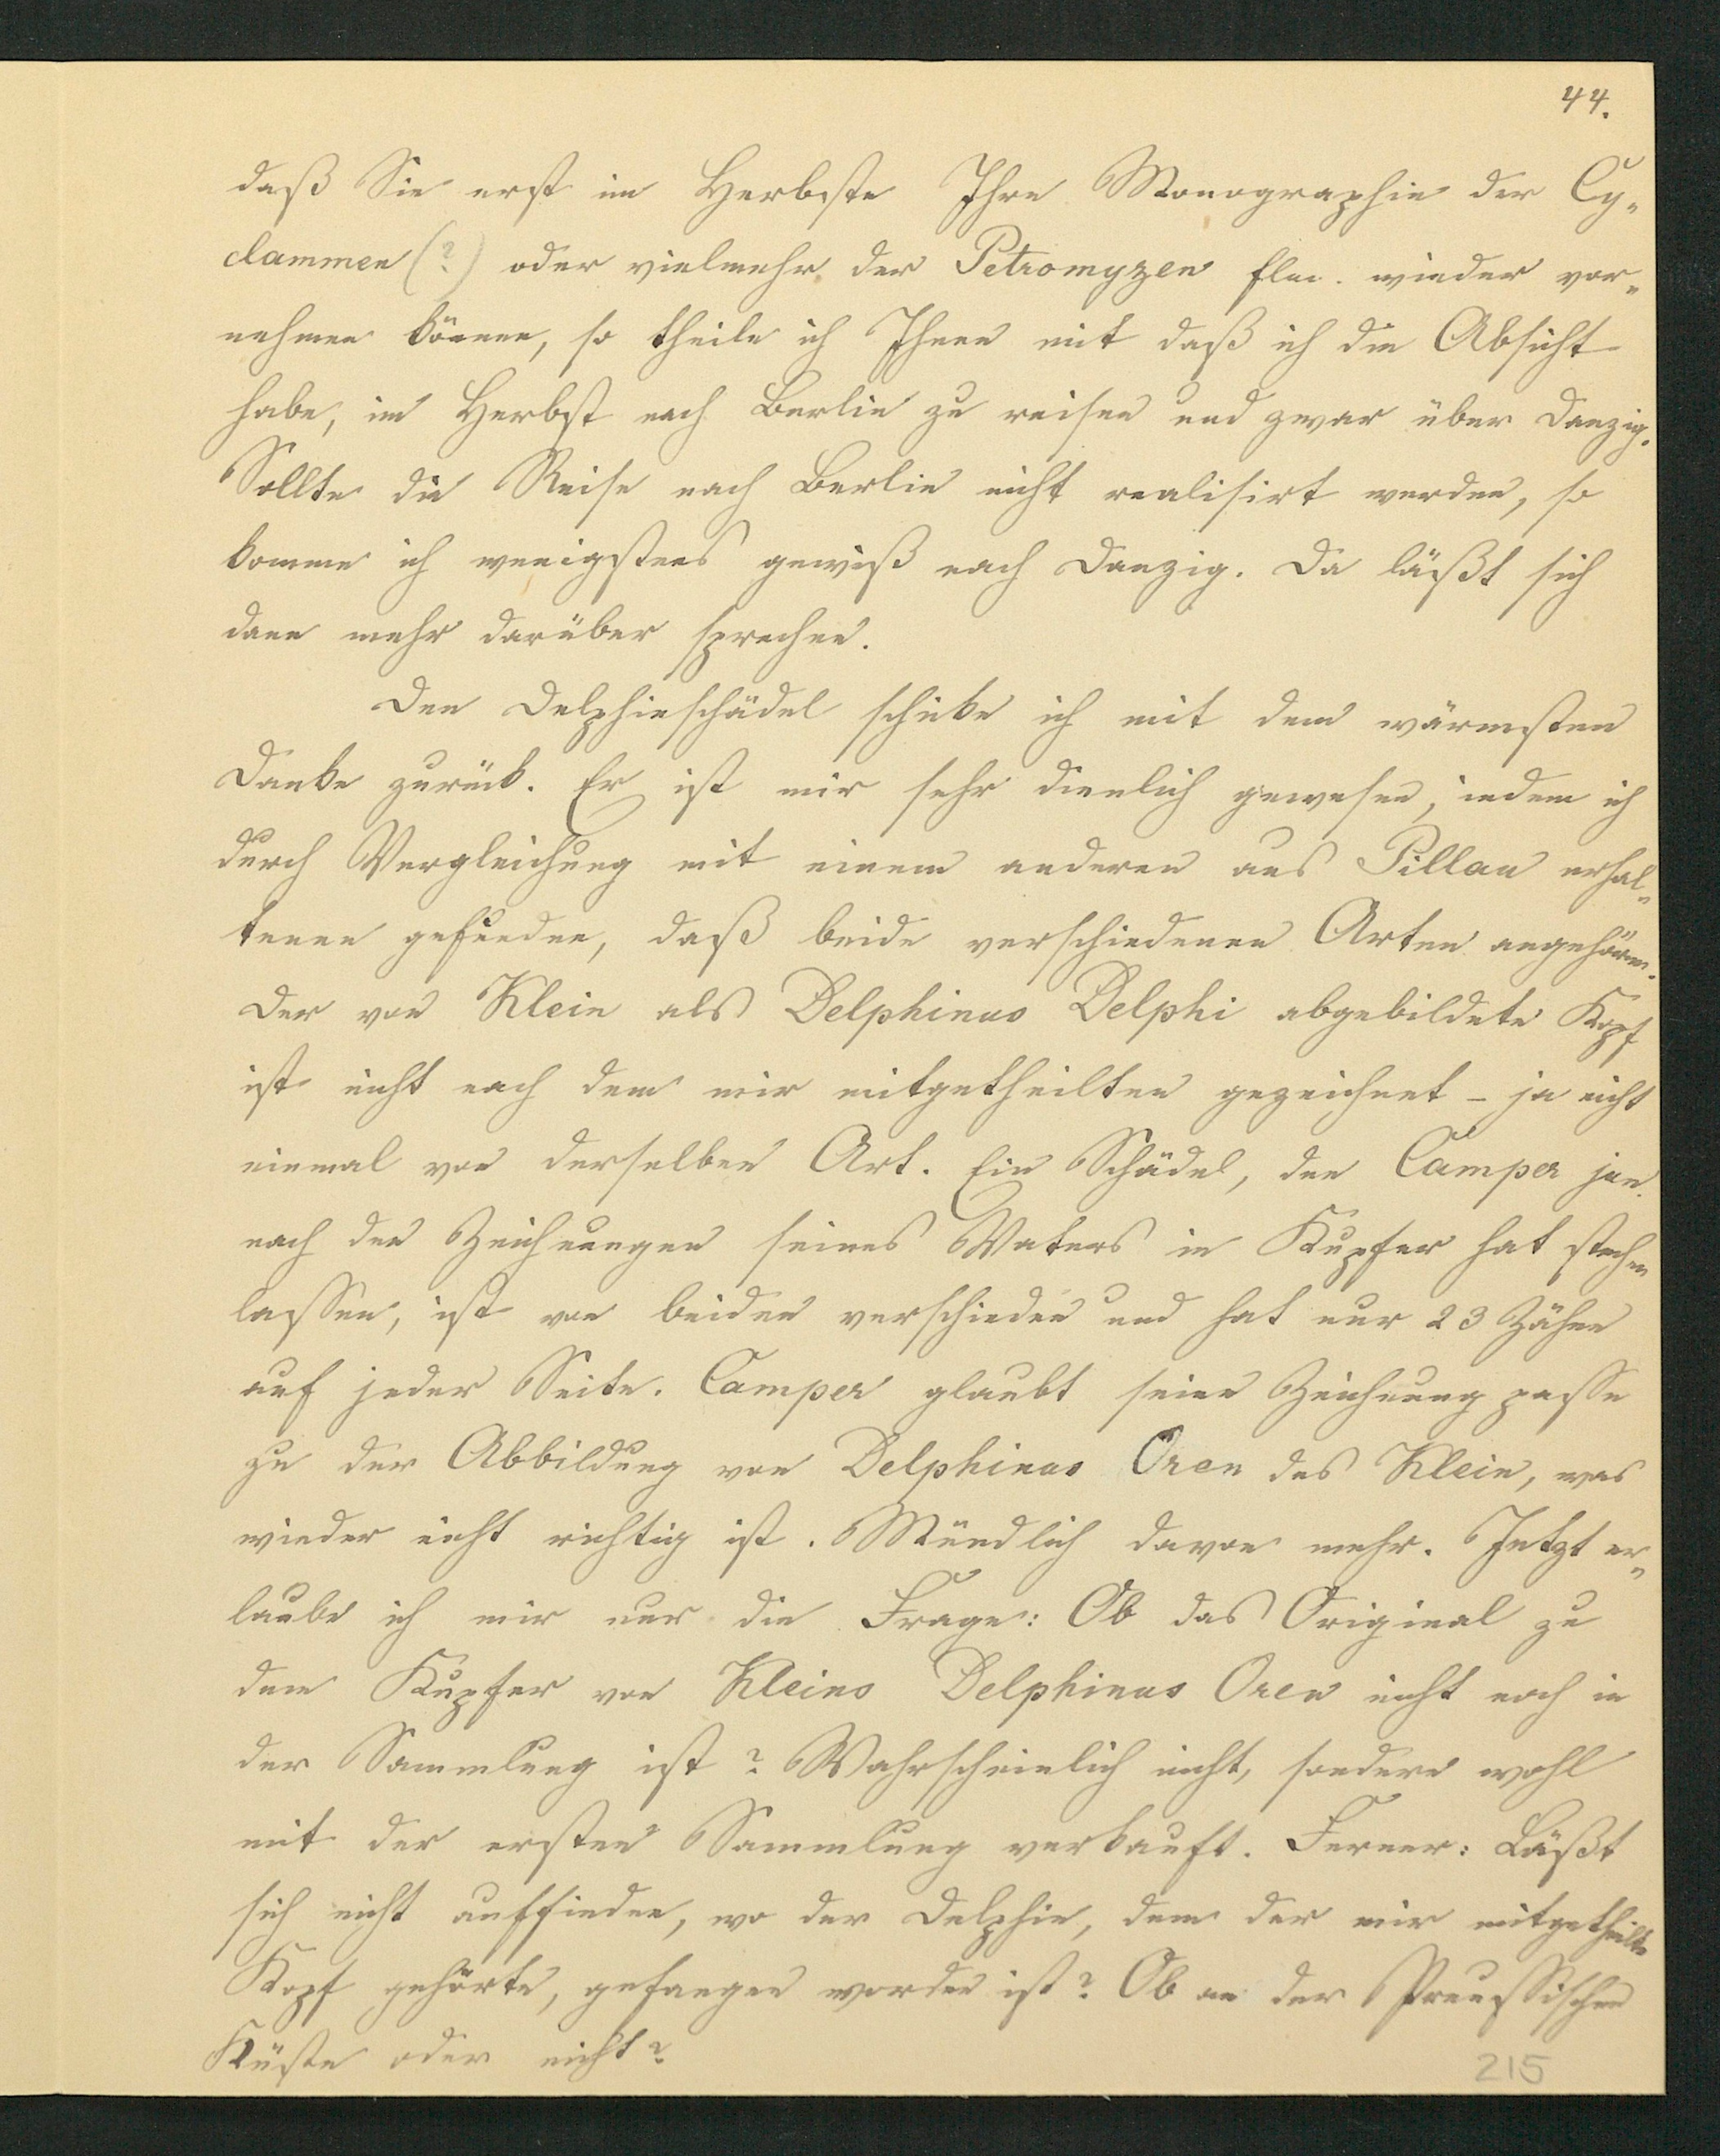 44.
daß Sie erst im Herbste Ihre Monographie der Cy-
clammen (?) oder vielmehr der Petromyzen flu. wieder vor-
nehmen können, so theile ich Ihnen mit daß ich die Absicht
habe, im Herbst nach Berlin zu reisen und zwar über Danzig.
Sollte die Reise nach Berlin nicht realisirt werden, so
komme ich wenigstens gewiß nach Danzig. Da läßt sich
dann mehr darüber sprechen.
Den Delphinschädel schicke ich mit dem wärmsten
Danke zurück. Er ist mir sehr dienlich gewesen, indem ich
durch Vergleichung mit einem anderen aus Pillau erhal-
tenen gefunden, daß beide verschiedenen Arten angehören.
Der von Klein als Delphinus Delphi abgebildete Kopf
ist nicht nach dem mir mitgetheilten gezeichnet – ja nicht
einmal von derselben Art. Ein Schädel, den Camper jun.
nach den Zeichnungen seines Vaters in Kupfer hat stechen
lassen, ist von beiden verschieden und hat nur 23 Zähne
auf jeder Seite. Camper glaubt seine Zeichnung passe
zu der Abbildung von Delphinus Oren des Klein, was
wieder nicht richtig ist. Mündlich davon mehr. Jetzt er-
laube ich mir nur die Frage: Ob das Original zu
dem Kupfer von Kleins Delphinus Oren nicht noch in
der Sammlung ist? Wahrscheinlich nicht, sondern wohl
mit der ersten Sammlung verkauft. Ferner: Läßt
sich nicht auffinden, wo der Delphin, dem der mir mitgetheilte
Kopf gehörte, gefangen worden ist? Ob an der Preussischen
Küste oder nicht?
215